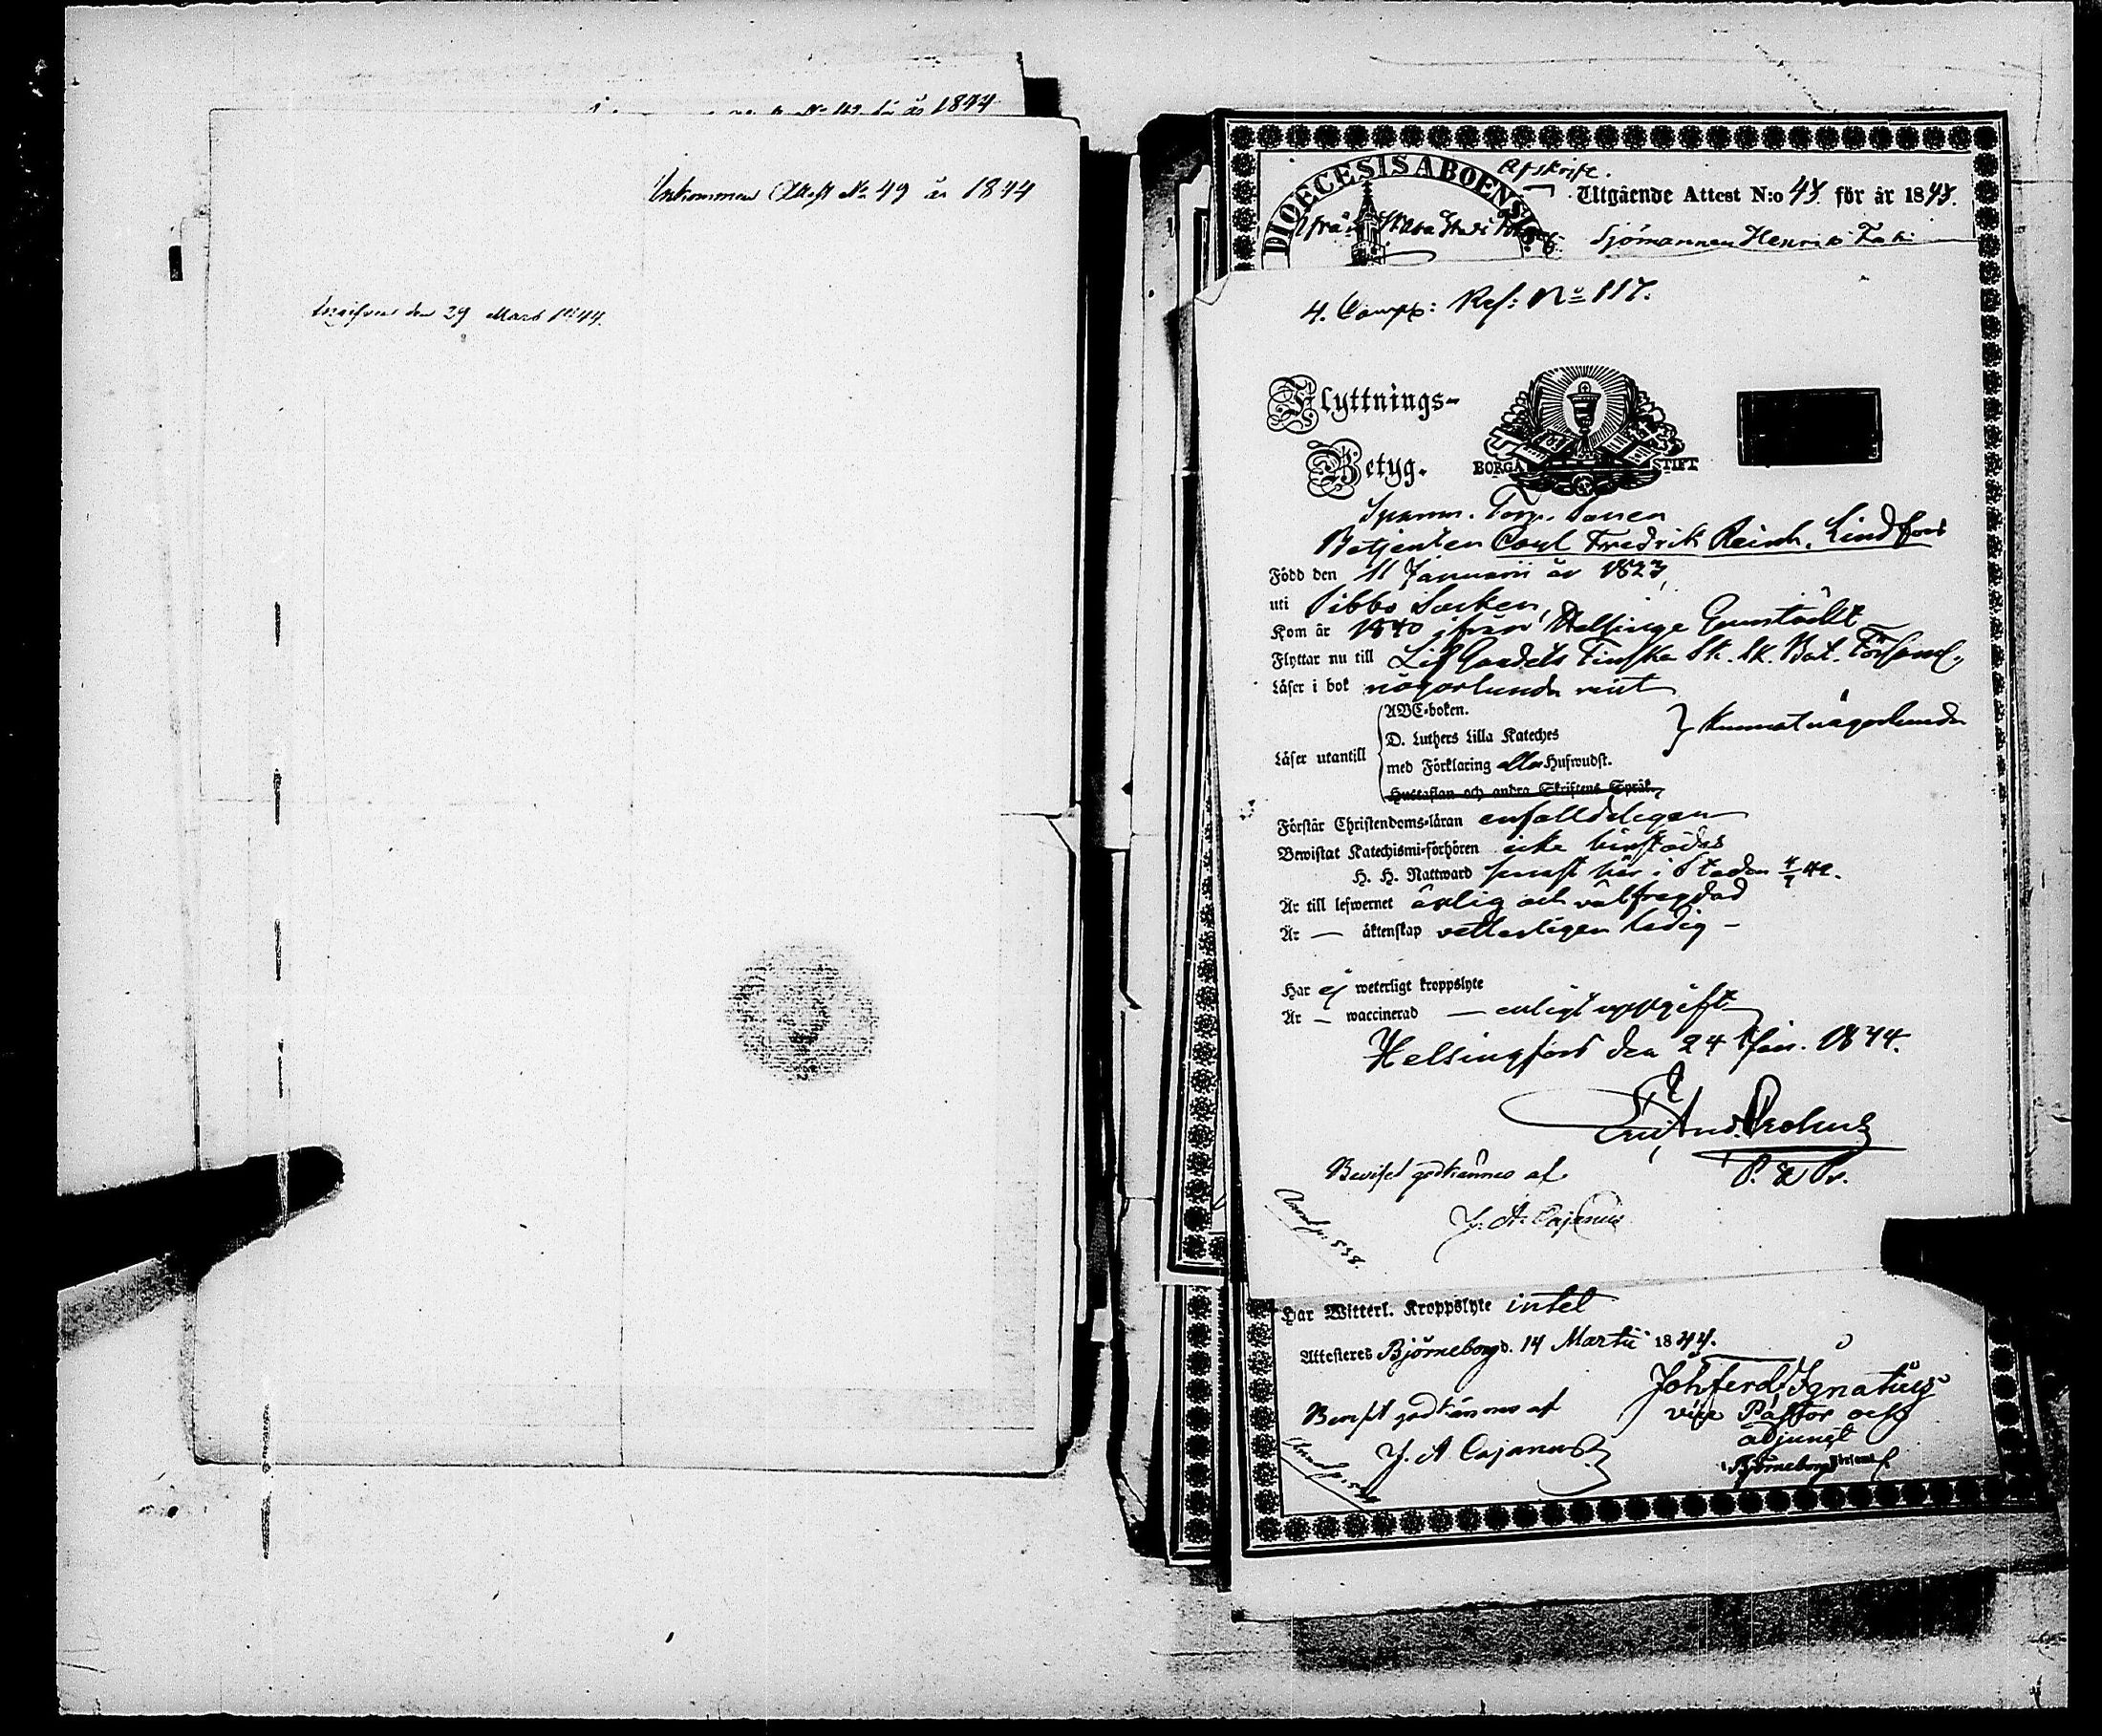 för år 1844
Inkommen Attest No 49 år 1844
den 29 Mars 1844.
DIOECESIS ABOENSIS
Afskrift.
Utgående Attest N:o 44 för år 1844.
ifrån
Sjömannen Henrik
4. Comp: Ref: No 117.
Flyttnings-
Betyg.
BORGÅ STIFT
Betjenten Carl Fredrik Reinh. Lindfors
Född den 11 Januarii år 1823,
uti Sibbo Socken,
Kom år 1840 ifrån Helsinge
Flyttar nu till Lif Gardets Finska Sk. Sk. Bat. Församl.
Läser i bok någorlunda rent
ABC-boken.
D. Luthers Lilla Kateches
Läser utantill
med Förklaring alla Hufwudst.
Hustaflan och andra Skriftens Språk.
} kunnat någorlunda
Förstår Christendoms-läran enfalldeligen
Bewistat Katechismi-förhören icke härstädes
H. H. Nattward senast här i Staden
Är till lefwernet ärlig och välfrejdad
Är — äktenskap vetterligen ledig —
Har ej weterligt kroppslyte
Är — waccinerad — enligt uppgift
Helsingfors den 24 1844.
Beviset godkännes af
J. A. Cajanus
Har Witterl. Kroppslyte intet
Attesteres Björneborg d. 14 Martii 1844.
Joh. Ferd. Ignatius
vice Pastor och
adjunct
i Björneborgs Församl.
Beviset godkännes af
J. A. Cajanus